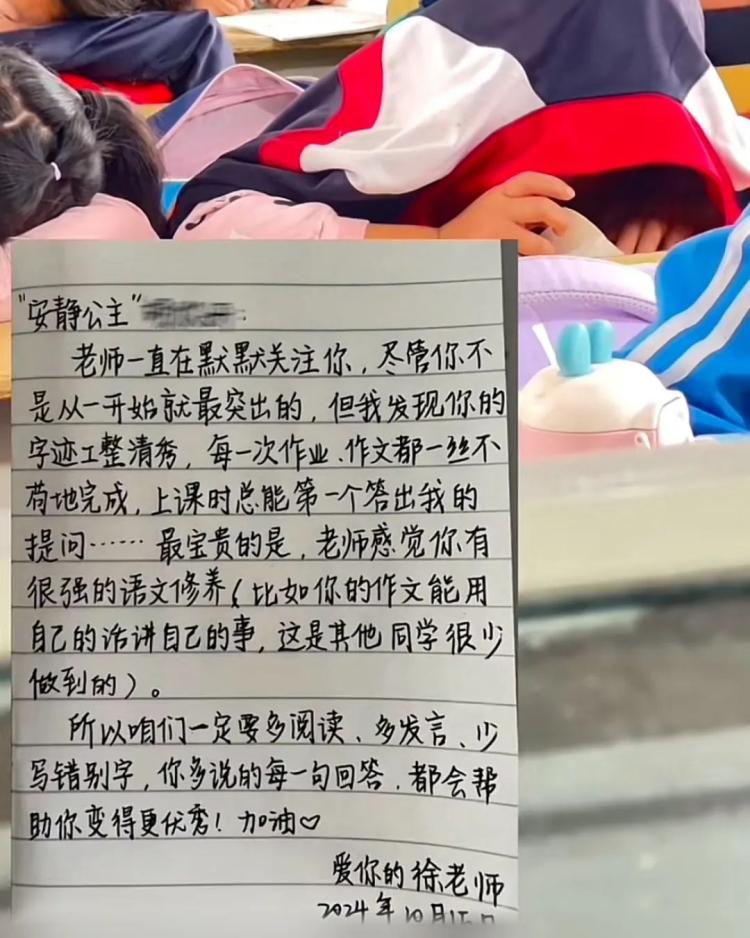 "安静公主"
老师一直在默默关注你，尽管你不
是从一开始就最突出的，但我发现你的
字迹工整清秀，每一次作业、作文都一丝不
苟地完成，上课时总能第一个答出我的
提问……最宝贵的是，老师感觉你有
很强的语文修养（比如你的作文能用
自己的话讲自己的事，这是其他同学很少
做到的）。
所以咱们一定要多阅读、多发言、少
写错别字，你多说的每一句回答，都会帮
助你变得更优秀！加油♡
爱你的徐老师
2024年10月15日